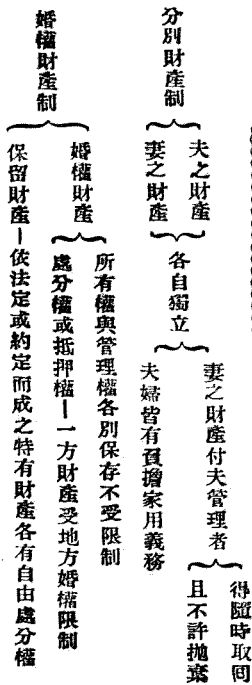 分別財產制
夫之財產
妻之財產
各自獨立
妻之財產付夫管理者
得隨時取回
且不許拋棄
夫婦皆有負擔家用義務
婚權財產制
婚權財產
所有權與管理權各別保存不受限制
處分權或抵押權—一方財產受地方婚權限制
保留財產—依法定或約定而成之特有財產各有自由處分權